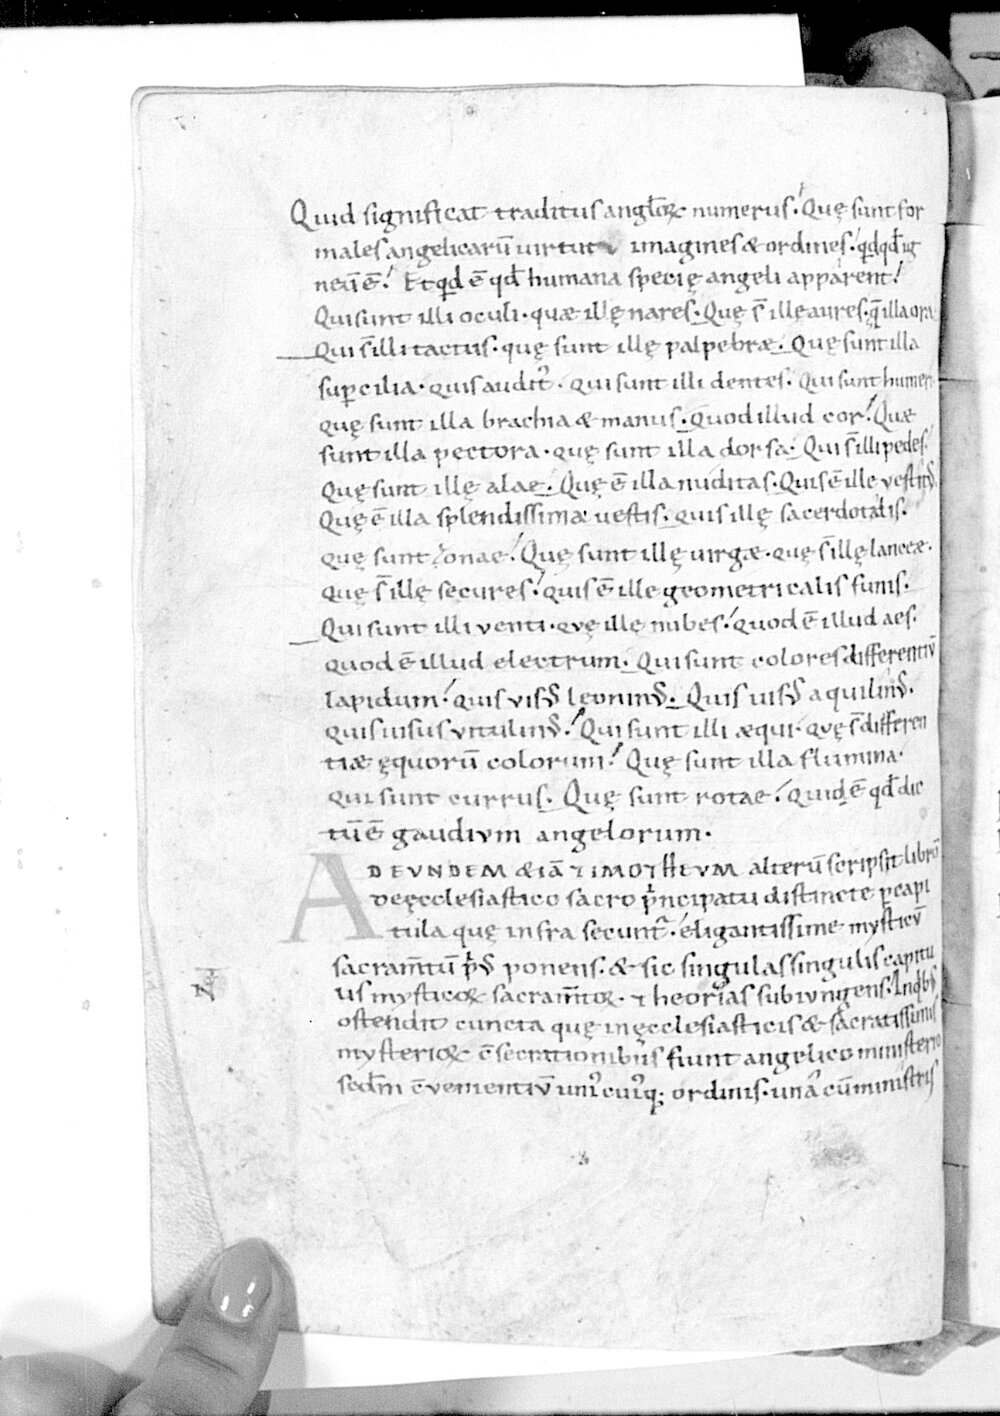 Quid significat traditus angl̄oꝝ numerus. Quę sunt for
males angelicarū virtutū imagines & ordines. qd qd̄ ig
neū ē. Et qd ē qd̄ humana specię angeli apparent.
Qui sunt illi oculi. quæ illę nares. Quę s̄ illę aures. q̄ illa ora
Qui s̄ illi tactus. quę sunt illę palpebræ. Quę sunt illa
suꝑcilia. quis auditꝰ. qui sunt illi dentes. Qui sunt humeri
quę sunt illa brachia & manus. Quod illud cor. Quæ
sunt illa pectora. quę sunt illa dorsa. Qui s̄ illi pedes.
Quę sunt illę alae. Quę ē illa nuditas. Quis ē ille vestitꝰ.
Quę ē illa splendissima vestis. quis illę sacerdotalis.
quę sunt zonae. Quę sunt illę virgæ. quę s̄ illę lanceæ.
quę s̄ illę secures. quis ē ille geometricalis funis.
Qui sunt illi venti. quę illę nubes. quod ē illud aes.
quod ē illud electrum. Qui sunt colores differentiū
lapidum. quis visꝰ leoninꝰ. Quis visꝰ aquilinꝰ.
quis uisus vitulinꝰ. Qui sunt illi æqui. quę s̄ differen
tiæ ęquorū colorum. Quę sunt illa flumina.
qui sunt currus. Quę sunt rotae. Quid ē qd̄ dic
tū ē gaudium angelorum.
AD EUNDEM & IĀ TIMOTHEUM alterū scripsit librū
de ęcclesiastico sacro principatu distincte ꝑ capi
tula quę infra secunt̃. eligantissime mysticū
sacram̄tū p̄ꝰ ponens. & sic singulas singulis capitu
lis mysticoꝝ sacram̄toꝝ. theorias subiungens. In qbꝰ
ostendit cuncta quę in ęcclesiasticis & sacratissimis
mysterioꝝ c̄secrationibus fiunt angelico ministerio
sedm̄ c̄venientiū unicuiq; ordinis. una cū ministris